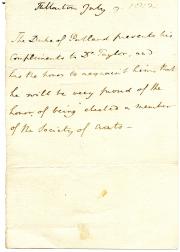 Fullarton July 9. 1812
The Duke of Portland presents his
Compliments to Dr Taylor, and
has the honor to acquaint him, that
he will be very proud of the
honor, of being elected a member
of the Society of Arts —